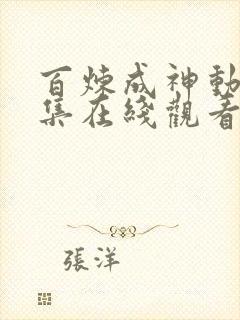 百煉成神動
集在綫觀看
張洋